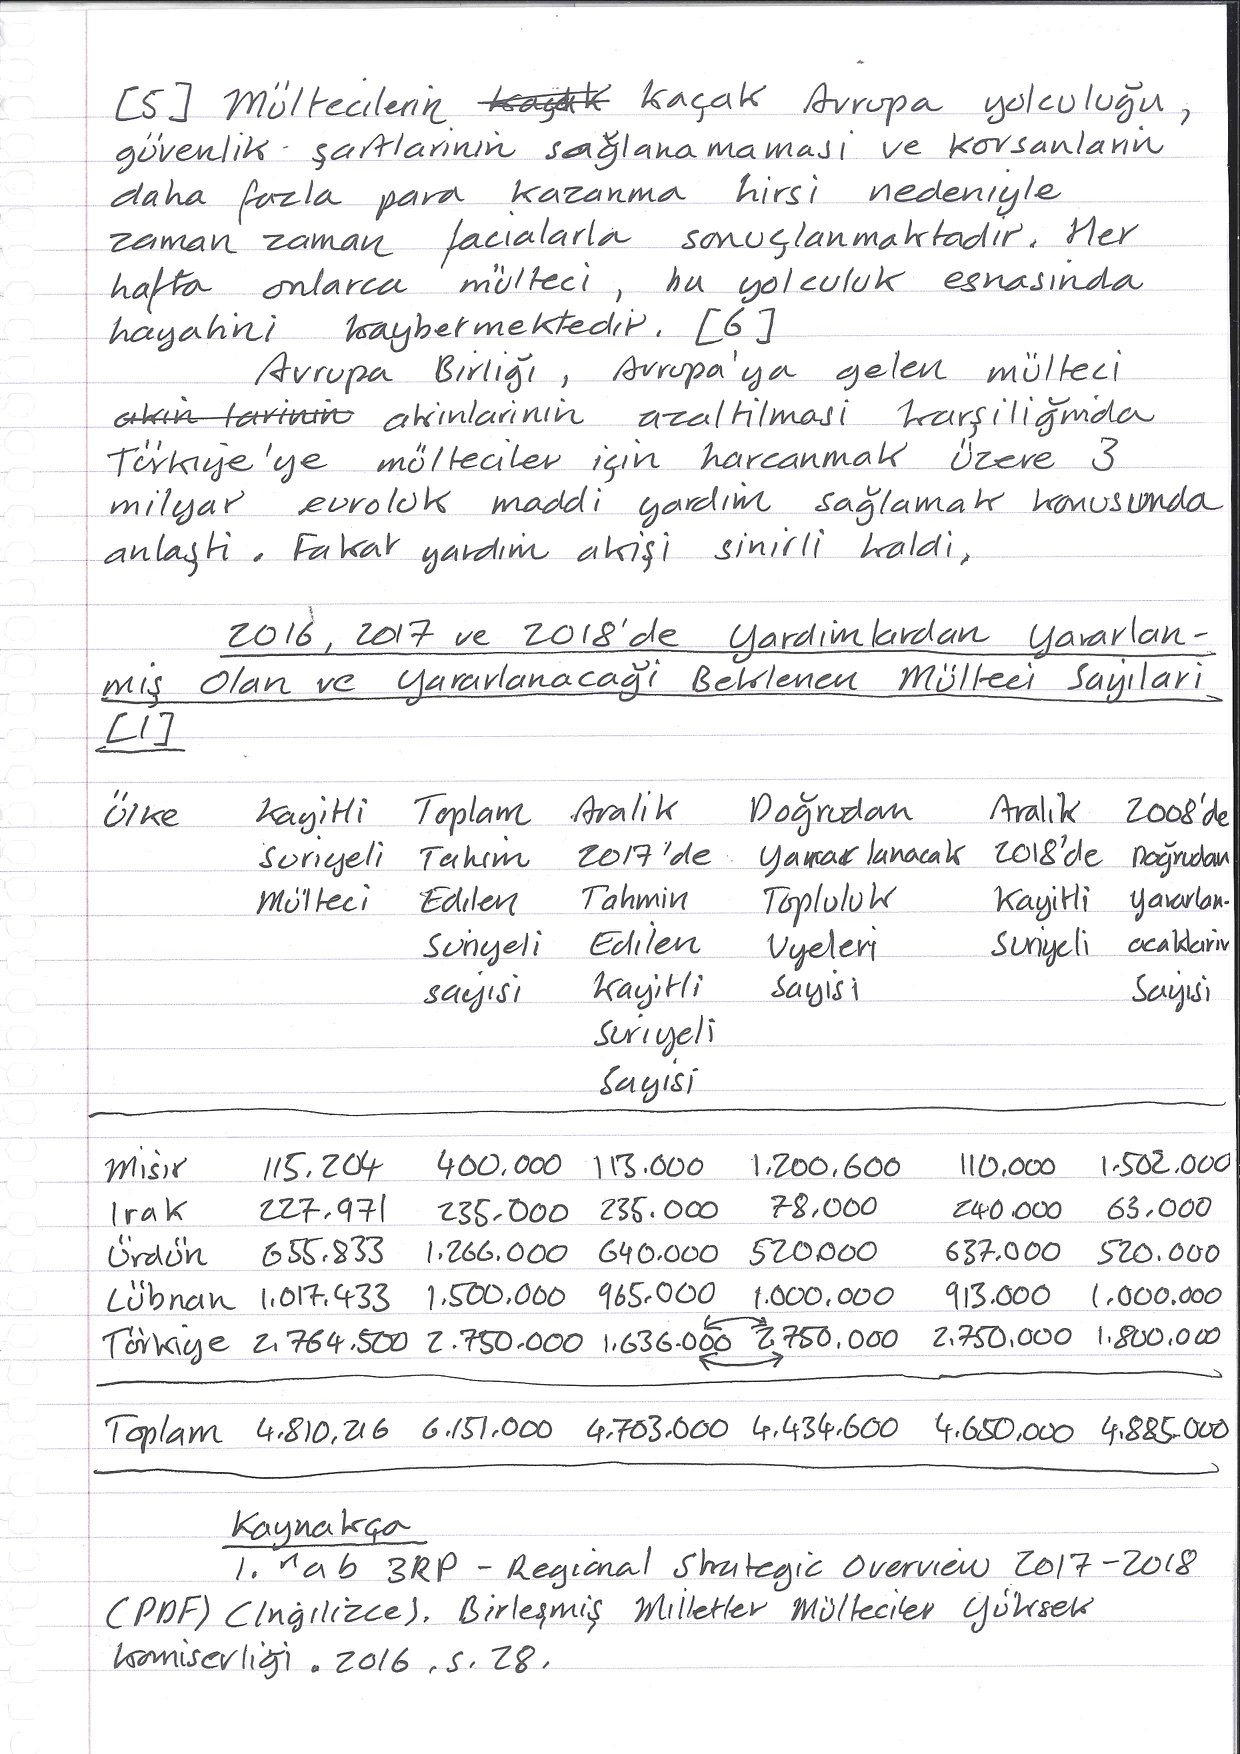 [5] Mültecilerin kaçak kaçak Avrupa yolculuğu,
güvenlik şartlarinin sağlanamamasi ve korsanlarin
daha fazla para kazanma hirsi nedeniyle
zaman zaman facialarla sonuçlanmaktadir. Her
hafta onlarca mülteci, bu yolculuk esnasinda
hayatini kaybetmektedir. [6]
Avrupa Birliği, Avrupa'ya gelen mülteci
akin larinin akinlarinin azaltilmasi karşiliğinda
Türkiye'ye mülteciler için harcanmak üzere 3
milyar euroluk maddi yardim sağlamak konusunda
anlaşti. Fakat yardim akişi sinirli kaldi.
2016, 2017 ve 2018'de Yardimlardan Yararlan-
miş Olan ve Yararlanacaği Beklenen Mülteci Sayilari
[1]
Ülke Kayitli Toplam Aralik Doğrudan Aralik 2008'de
Suriyeli Tahim 2017'de Yararlanacak 2018'de Doğrudan
Mülteci Edilen Tahmin Topluluk Kayitli Yararlan-
Suriyeli Edilen Uyeleri Suriyeli acaklarin
sayisi Kayitli Sayisi Sayisi
Suriyeli
Sayisi
Misir 115.204 400.000 113.000 1.200.600 110.000 1.502.000
Irak 227.971 235.000 235.000 78.000 240.000 63.000
Ürdün 655.833 1.266.000 640.000 520.000 637.000 520.000
Lübnan 1.017.433 1.500.000 965.000 1.000.000 913.000 1.000.000
Türkiye 2.764.500 2.750.000 1.636.000 2.750.000 2.750.000 1.800.000
Toplam 4.810.216 6.151.000 4.703.000 4.434.600 4.650.000 4.885.000
Kaynakça
1. ^ a b 3RP - Regional Strategic Overview 2017-2018
(PDF) (Ingilizce). Birleşmiş Milletler Mülteciler Yüksek
komiserliği. 2016. s. 28.